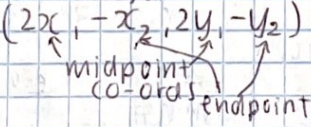 (2x, -x₂, 2y, -y₂)
midpoint
co-ords endpoint